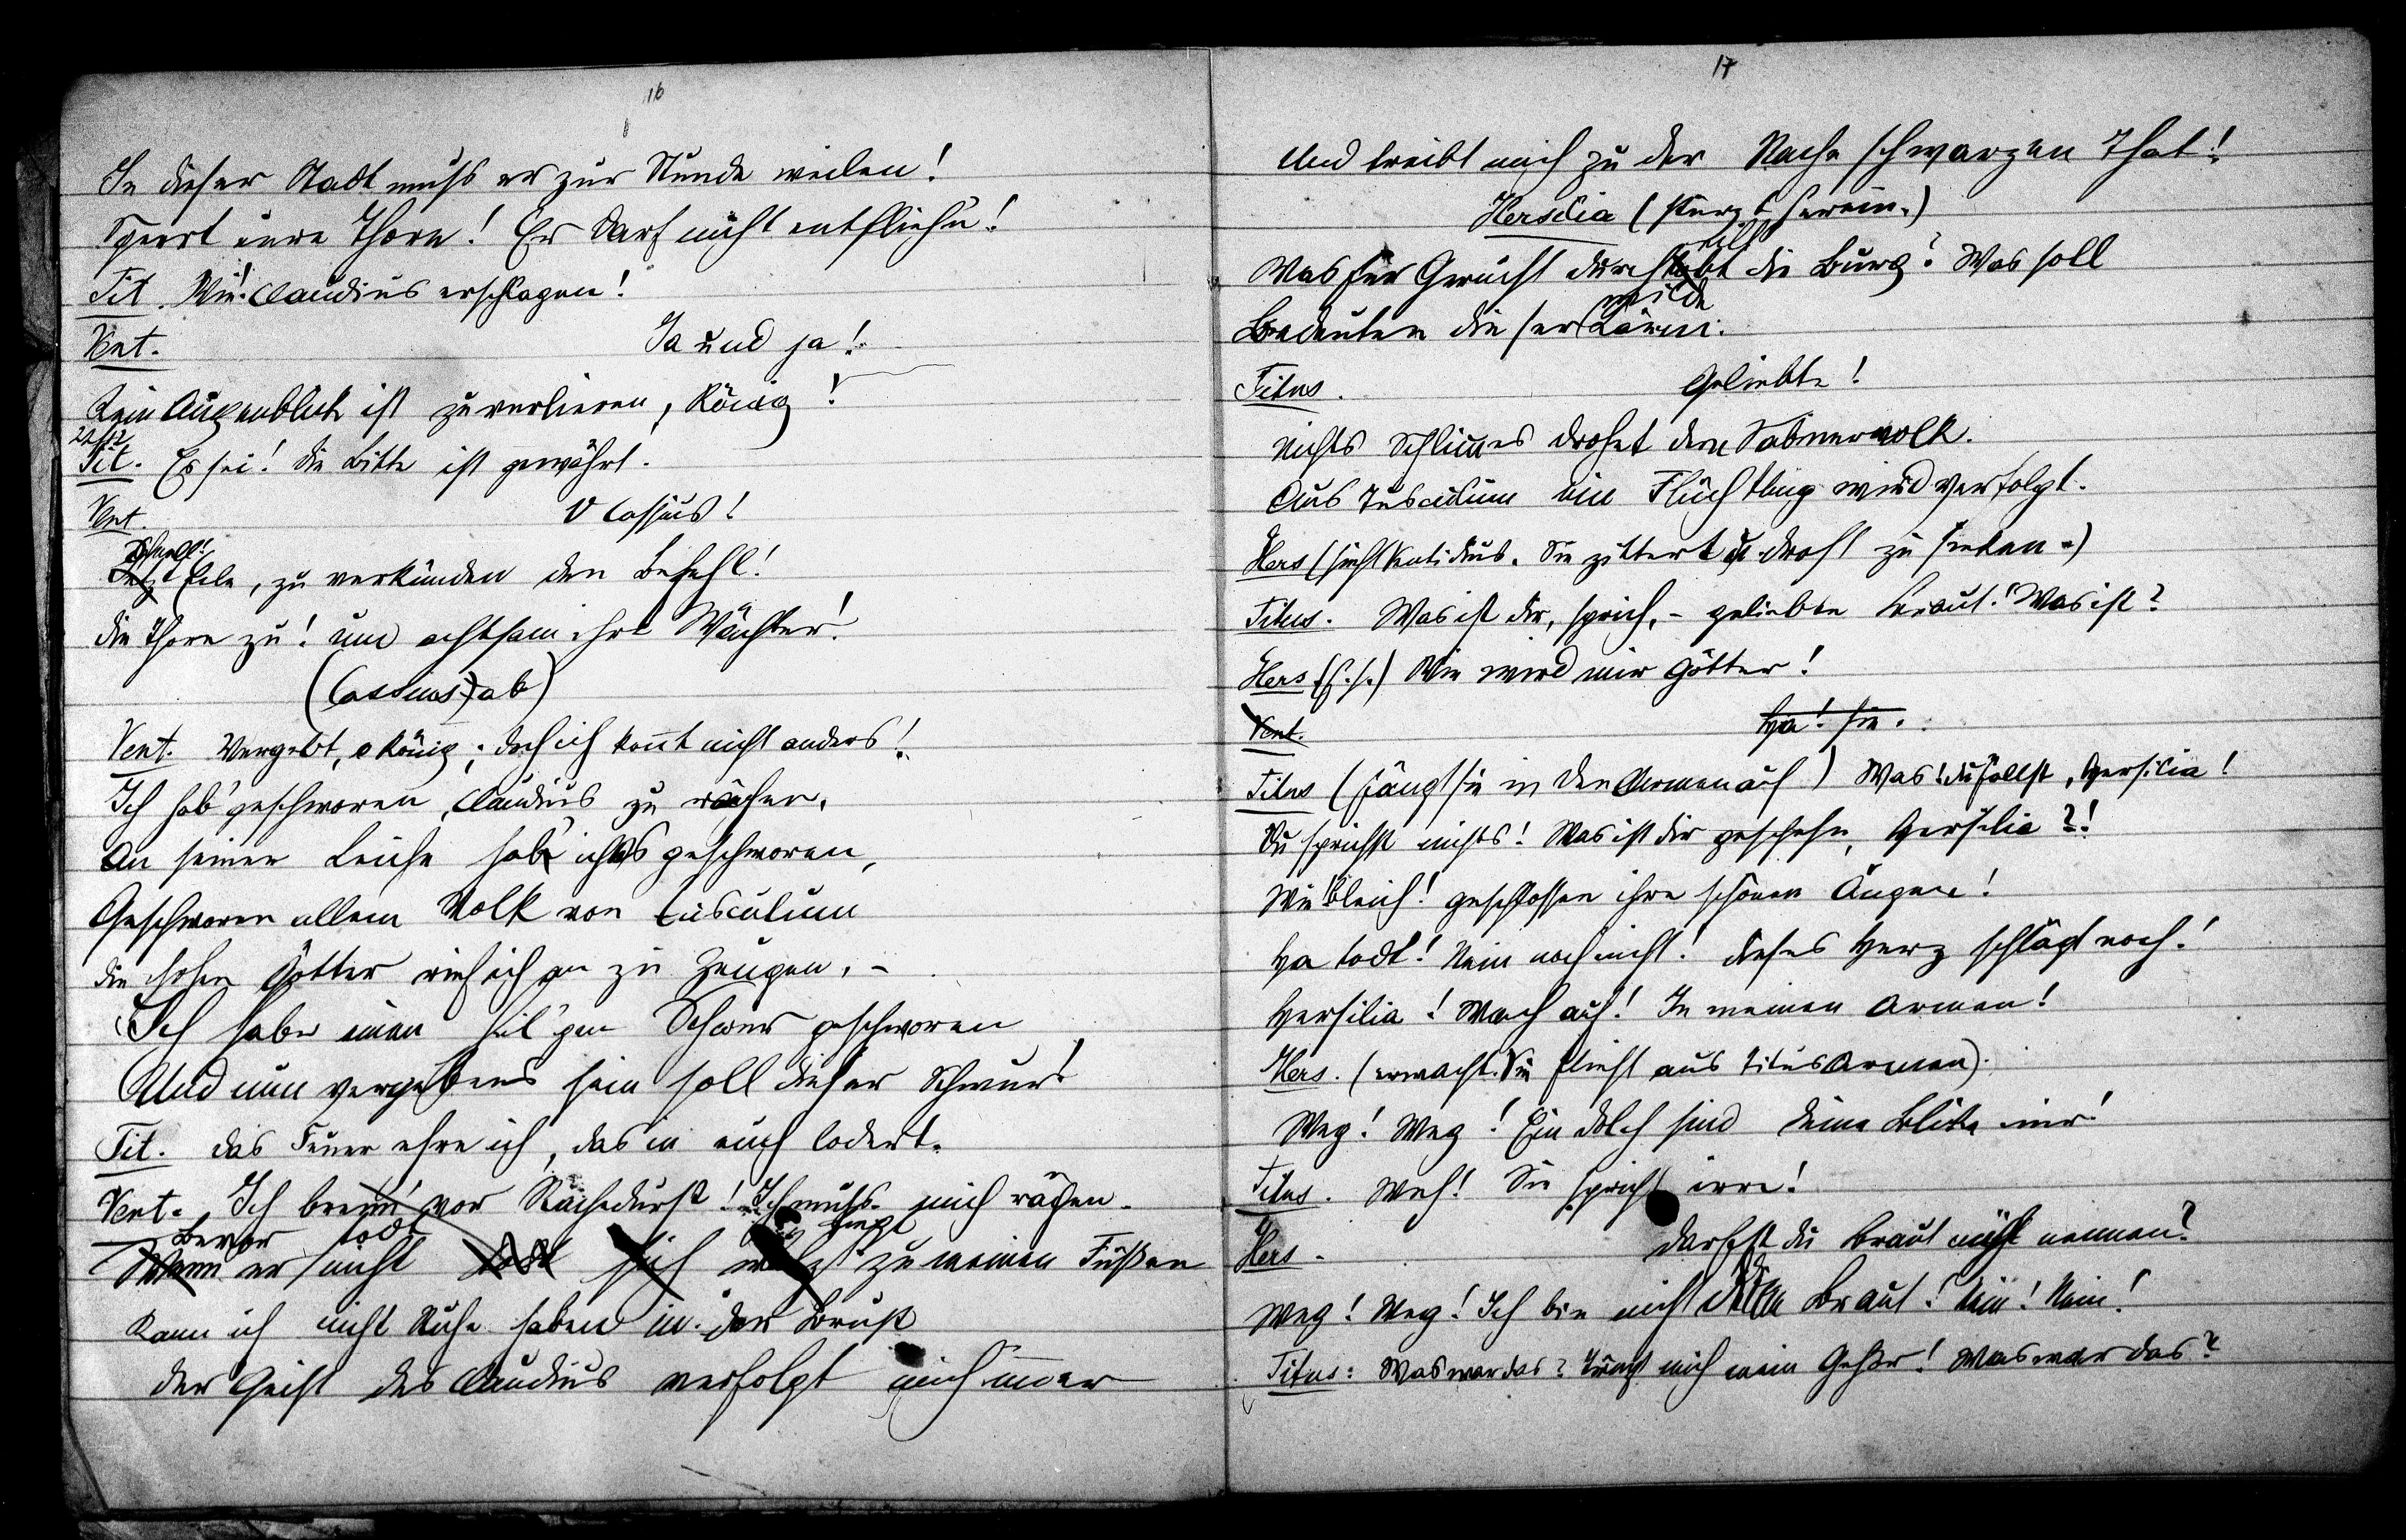 16
In dieser Stadt muß er zur Stunde weilen!
Sperrt eure Thore! Er darf nicht entfliehn!
Tit. Wie! Claudius erschlagen!
Vent. Ja und ja!
Kein Augenblick ist zu verlieren, König!
Tit. Es sei! die Bitte ist gewährt.
Vent. O Cassius!
Schnell!
Jetzt Eile, zu verkünden den Befehl!
die Thore zu! und achtsam ihre Wächter!
(Cassius) ab)
Vent. Vergebt, o König; doch ich konnt nicht anders!
Ich hab' geschworen, Claudius zu rächen,
An seiner Leiche hab' ich's geschworen,
Geschworen allem Volk von Tusculum
die hohen Götter rief ich an zu Zeugen. –
Ich habe einen heil'gen Schwur geschworen
Und nun vergebens sein soll dieser Schwur!
Tit. das Feuer ehre ich, das in euch lodert.
Vent. Ich brenn' vor Rachedurst! Ich muß mich rächen.
Bevor todt liegt
Wenn er nicht sich zu meinen Füßen
Kann ich nicht Ruhe haben in der Brust
der Geist des Claudius verfolgt mich immer
17
Und treibt mich zu der Rache schwarzen That!
Hersilia (stürzt herein.)
Was für Gerücht durchtobt die Burg? Was soll
wilde
Bedeuten dieser Lärm.
Titus. Geliebte!
nichts Schlimes drohet dem Sabinervolk.
Aus Tusculum ein Flüchtling wird verfolgt.
Hers (sieht Ventidius. Sie zittert u droht zu sinken.)
Titus. Was ist dir, sprich, – geliebte Braut! Was ist?
Hers. (f. s.) Wie wird mir Götter!
Vent. Ha! sie.
Titus (fängt sie in den Armen auf) Was! du fällst, Hersilia!
Du sprichst nichts! Was ist dir geschehn, Hersilia?!
Wie bleich! geschlossen ihre schönen Augen!
Ha todt! Nein noch nicht! dieses Herz schlägt noch!
Hersilia! Wach auf! In meinen Armen!
Hers. (erwacht. Sie flieht aus Titus Armen).
Weg! Weg! Ein dolch sind deine Blicke mir!
Titus. Weh! Sie spricht irre!
Hers. darfst du Braut mich nennen?
Weg! Weg! Ich bin nicht deine Braut! Nein! Nein!
Titus: Was war das? Täuscht mich mein Gehör! Was war das?